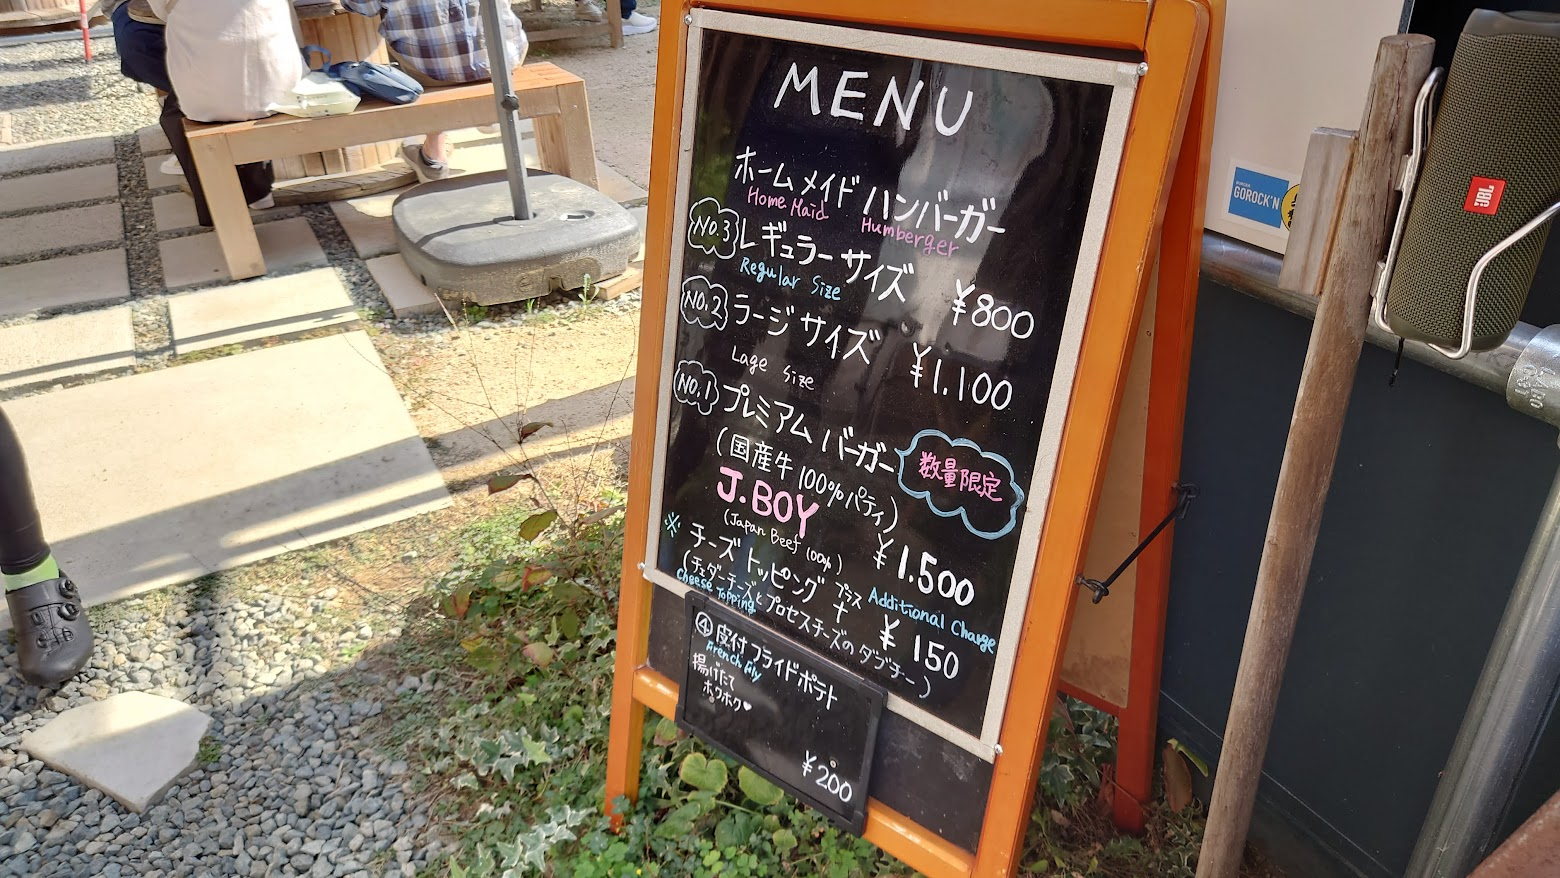 MENU
ホームメイド ハンバーガー
Home Maid Humberger
No.3 レギュラーサイズ ¥800
Regular Size
No.2 ラージサイズ ¥1.100
Lage Size
No.1 プレミアム バーガー 数量限定
(国産牛100%パティ)
J.BOY ¥1.500
(Japan Beef 100%)
※ チーズ トッピング プラス + ¥150
Additional Charge
(チェダーチーズとプロセスチーズのダブチー)
Cheese Topping
④ 皮付フライドポテト
French Fly
揚げたて
ホクホク♥
¥200
GOROCK'N
JBL